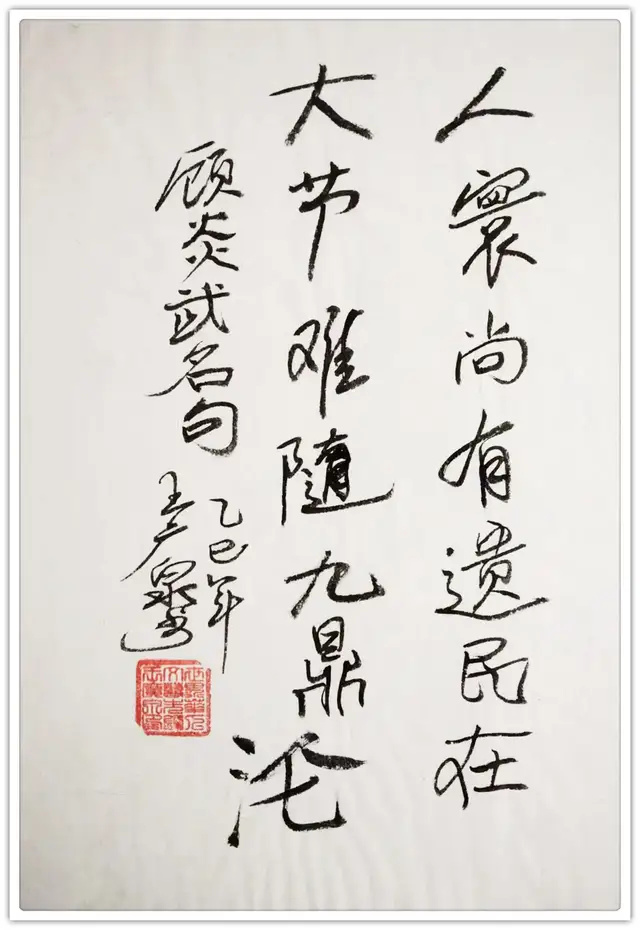 人寰尚有遗民在
大节难随九鼎沦
顾炎武名句
乙巳年
王广泉书